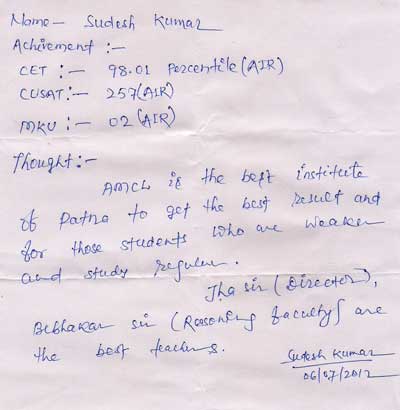 Name - Sudesh Kumar
Achivement :-
CET :- 98.01 Percentile (AIR)
CUSAT:- 257(AIR)
MKU :- 02 (AIR)
Thought :-
AMCL is the best institute
of Patna to get the best result and
for those students who are weaker
and study reguler.
Jha sir (Director),
Bibhakar sir (Reasoning faculty) are
the best teachers.
Sudesh Kumar
06/07/2012